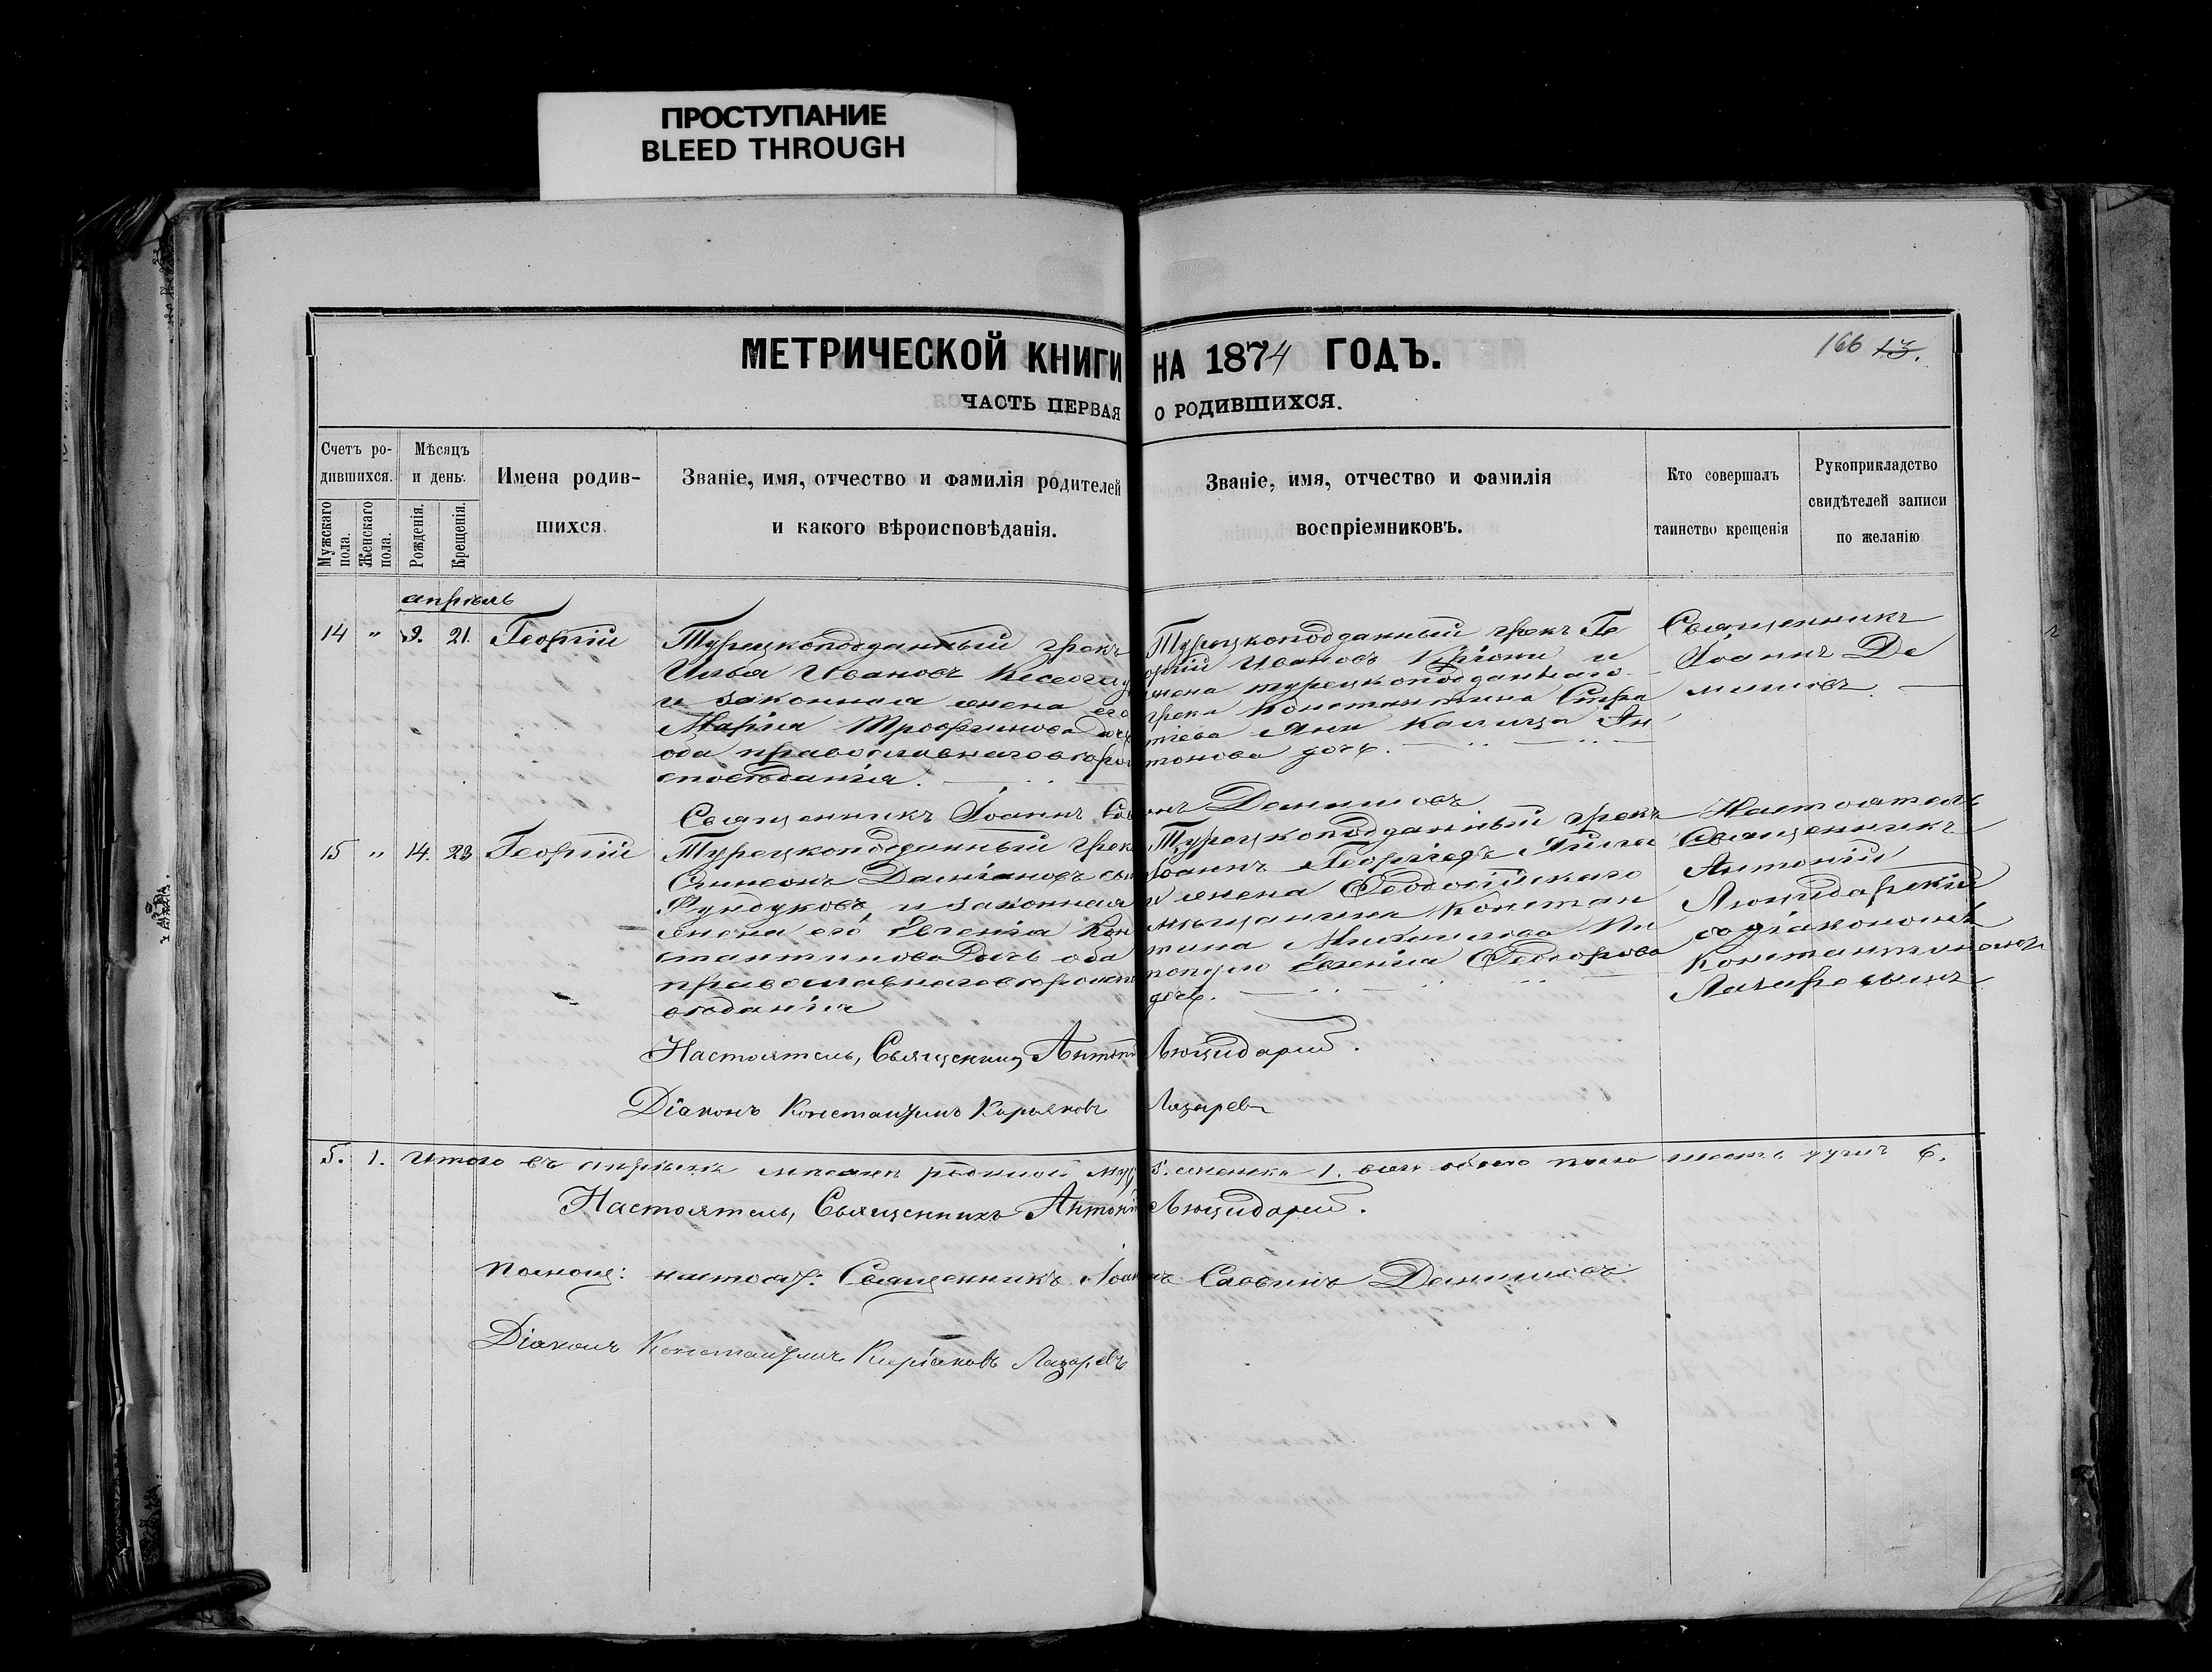 ПРОСТУПАНИЕ
BLEED THROUGH
МЕТРИЧЕСКОЙ КНИГИ НА 1874 ГОДЪ.
166 13.
ЧАСТЬ ПЕРВАЯ О РОДИВШИХСЯ.
Счетъ ро-
дившихся.
Мужскаго пола.
Женскаго пола.
Мѣсяцъ
и день.
Рожденія.
Крещенія.
Имена родив-
шихся.
Званіе, имя, отчество и фамилія родителей
и какого вѣроисповѣданія.
Званіе, имя, отчество и фамилія
воспріемниковъ.
Кто совершалъ
таинство крещенія
Рукоприкладство
свидѣтелей записи
по желанію
апрѣль
14 " 9. 21. Георгій
Турецкоподданный грекъ
Илья Ивановъ
и законная жена его
Марія Трофимова дочь
оба православнаго вѣрои
сповѣданія.
Турецкоподданный грекъ Ге
оргій Ивановъ и
жена турецкоподданнаго
грека Константина Стра
тіева Ан
тонова дочь.
Священникъ
Іоаннъ Де
мишовъ.
Священникъ Іоаннъ Демишовъ
15 " 14. 23 Георгій
Турецкоподданный грекъ
Симеонъ Даміановъ сынъ
Фундуковъ, и законная
жена его Евгенія Кон
стантинова дочь оба
православнаго вѣроисп
овѣданія
Турецкоподданный грекъ
Іоаннъ Георгіевъ
и жена Ѳеодосійскаго
мѣщанина Констан
тина Михаилова
популо Евгенія Ѳеодорова
дочь.
Настоятель
Священникъ
Антоній
Люцидарскій
съ діакономъ
Константиномъ
Лазаревымъ
Настоятель, Священникъ Антоній Люцидарскій.
Діаконъ Константинъ Киріаковъ Лазаревъ
5. 1. Итого въ апрѣлѣ мѣсяцѣ родилось муж 5. женска 1. обоего пола шесть душъ 6.
Настоятель, Священникъ Антоній Люцидарскій.
Помощ: настоят: Священникъ Іоаннъ Саввинъ Демишовъ
Діаконъ Константинъ Киріаковъ Лазаревъ